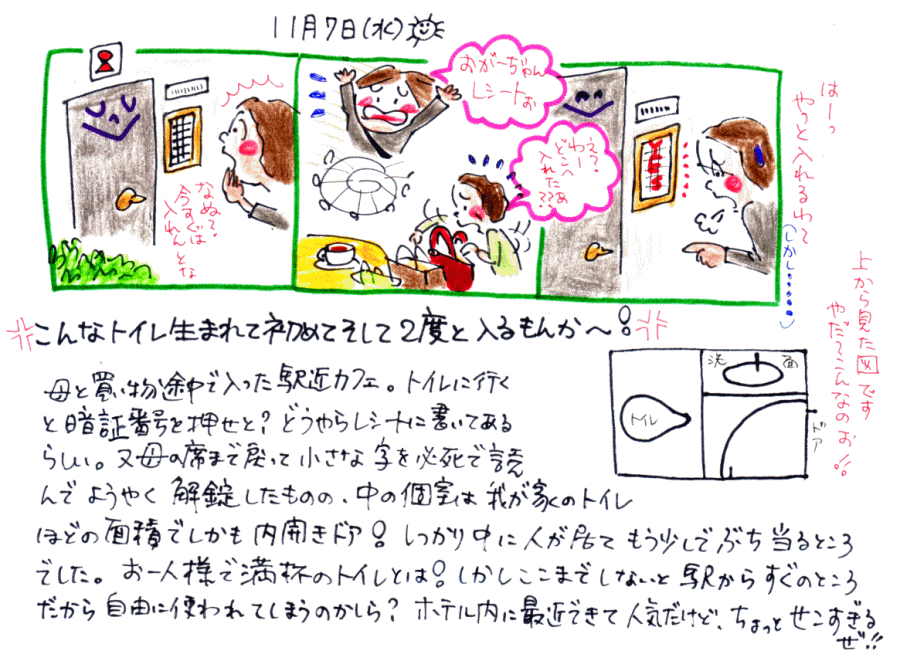 11月7日(水)
なぬって・
今すぐは
入れんとな
おがーちゃん
レシートぉ
え?
わー
どこへ
入れた
??あ
YES
はーっ
やっと入れるわて
(しかし・・・・・・)
こんなトイレ生まれて初めてそして2度と入るもんか〜!
上から見た図です
やだってこんなのぉ!!
洗面
トイレ
ドア
母と買い物途中で入った駅近カフェ。トイレに行く
と暗証番号を押せと?どうやらレシートに書いてある
らしい。又母の席まで戻って小さな字を必死で読
んでようやく解錠したものの、中の個室は我が家のトイレ
ほどの面積でしかも内開きドア!しっかり中に人が居てもう少しでぶち当るところ
でした。お一人様で満杯のトイレとは!しかしここまでしないと駅からすぐのところ
だから自由に使われてしまうのかしら?ホテル内に最近できて人気だけど、ちょっとせこすぎる
ぜ!!